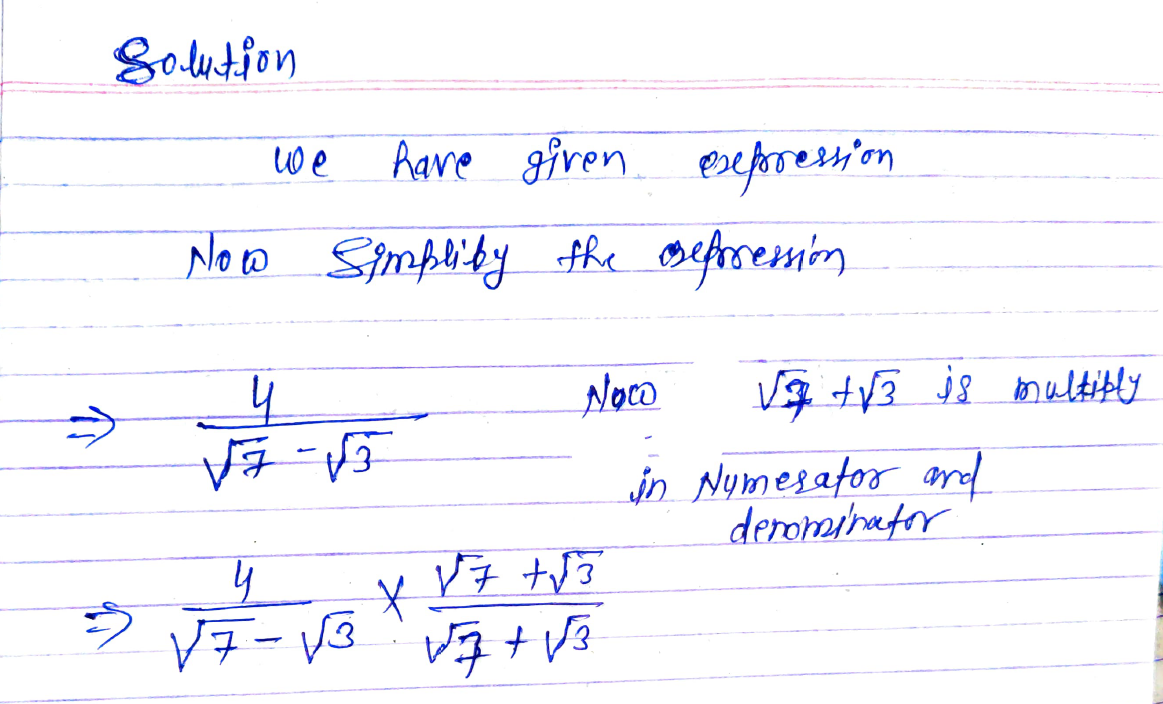 Solution
we have given expression
Now Simplify the expression
⇒ 4 / (√7 - √3) Now √7 + √3 is multiply
in Numerator and
denominator
⇒ 4 / (√7 - √3) × (√7 + √3) / (√7 + √3)